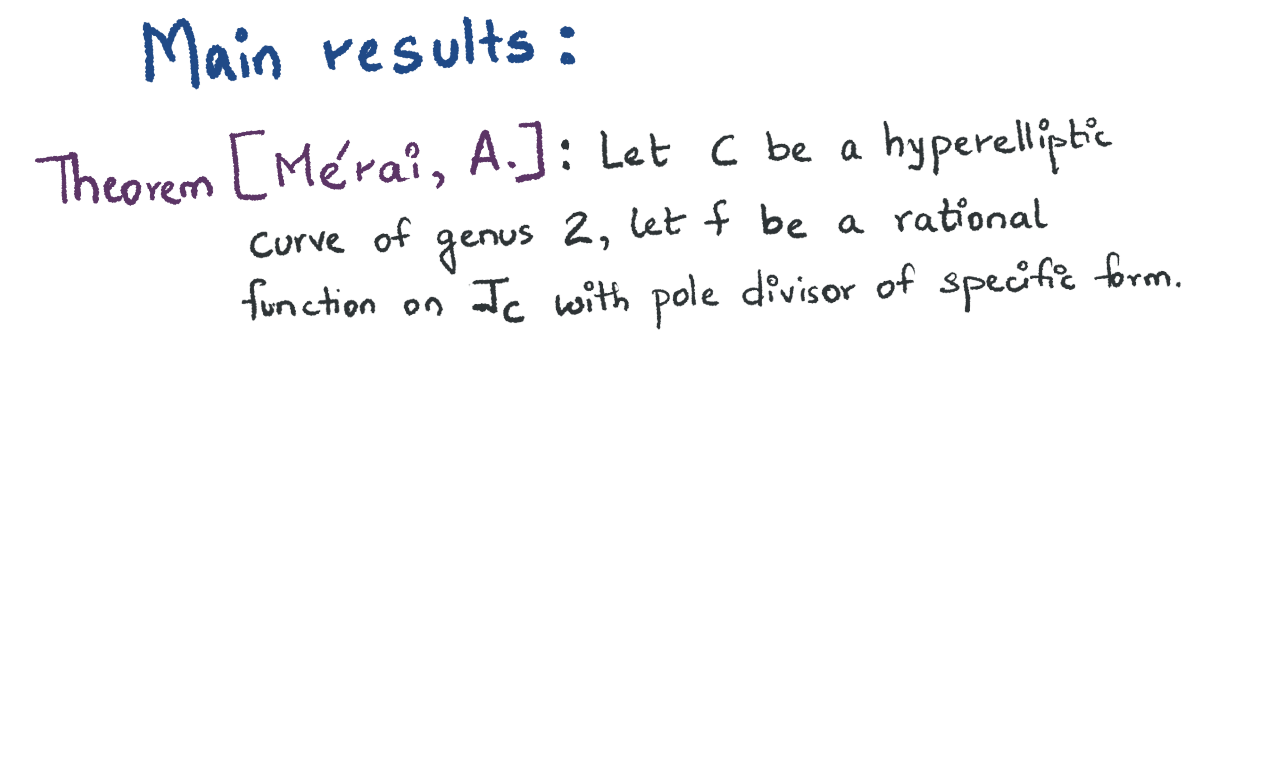 Main results:
Theorem [Mérai, A.]: Let C be a hyperelliptic
curve of genus 2, let f be a rational
function on J_C with pole divisor of specific form.